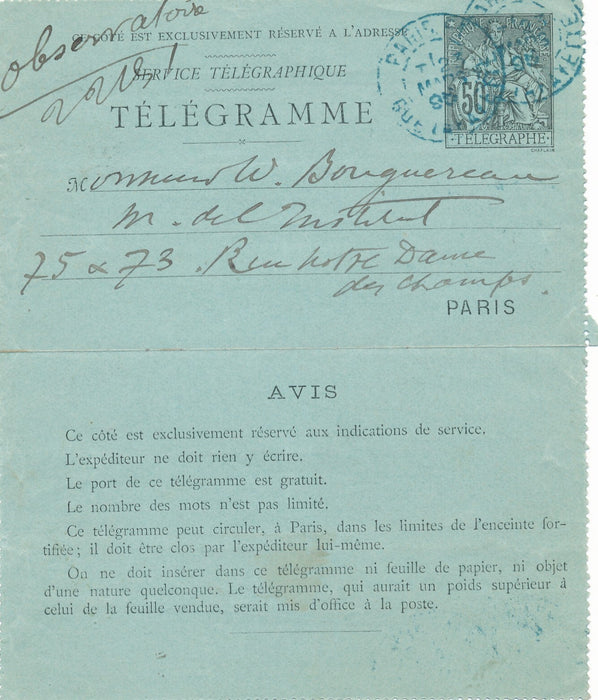 observatoire
CE CÔTÉ EST EXCLUSIVEMENT RÉSERVÉ A L'ADRESSE
SERVICE TÉLÉGRAPHIQUE
TÉLÉGRAMME
RÉPUBLIQUE FRANÇAISE
50
TÉLÉGRAPHE
CHAPLAIN
PARIS
MARS
Monsieur W. Bouguereau
M. de l'Institut
75 & 73. Rue Notre Dame
des Champs.
PARIS
AVIS
Ce côté est exclusivement réservé aux indications de service.
L'expéditeur ne doit rien y écrire.
Le port de ce télégramme est gratuit.
Le nombre des mots n'est pas limité.
Ce télégramme peut circuler, à Paris, dans les limites de l'enceinte for-
tifiée; il doit être clos par l'expéditeur lui-même.
On ne doit insérer dans ce télégramme ni feuille de papier, ni objet
d'une nature quelconque. Le télégramme, qui aurait un poids supérieur à
celui de la feuille vendue, serait mis d'office à la poste.